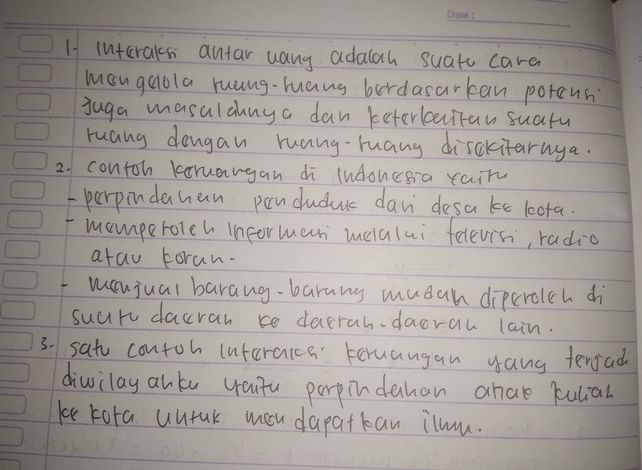 Date :
1. Interaksi antar uang adalah suatu cara
mengelola ruang-ruang berdasarkan potensi
juga masalahnya dan keterkaitan suatu
ruang dengan ruang-ruang disekitarnya.
2. contoh keruangan di Indonesia yaitu
- perpindahan penduduk dari desa ke kota.
- memperoleh informasi melalui televisi, radio
atau koran.
- menjual barang-barang mudah diperoleh di
suatu daerah ke daerah-daerah lain.
3. satu contoh interaksi keruangan yang terjadi
diwilayahku yaitu perpindahan anak kuliah
ke kota untuk mendapatkan ilmu.